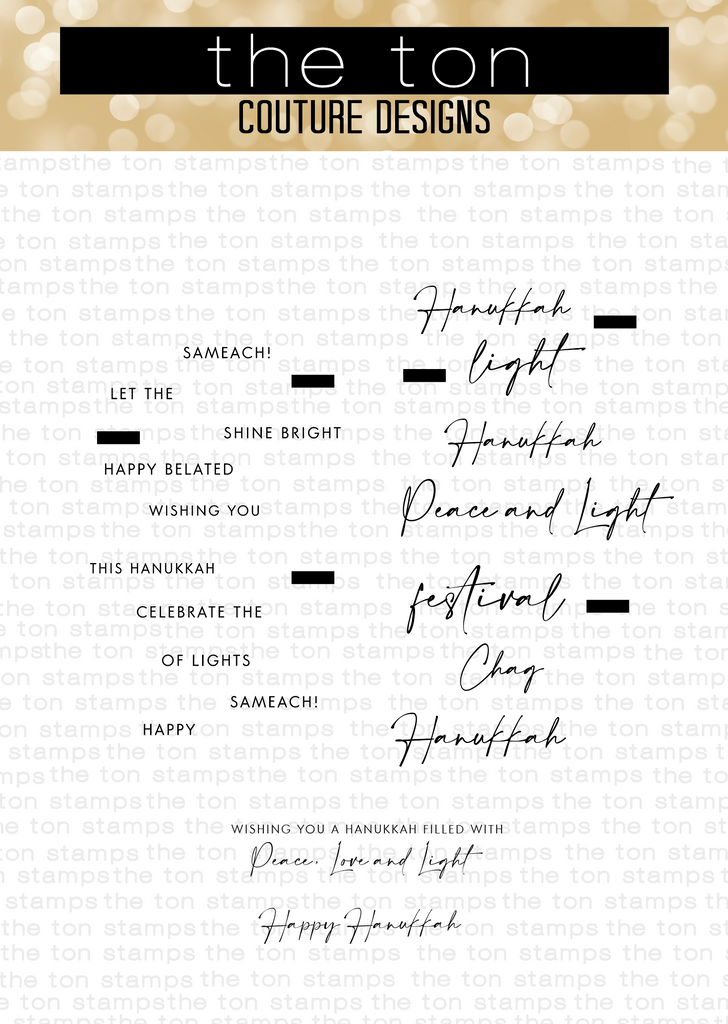 the ton
COUTURE DESIGNS
Hanukkah
SAMEACH!
light
LET THE
SHINE BRIGHT
Hanukkah
HAPPY BELATED
WISHING YOU
Peace and Light
THIS HANUKKAH
festival
CELEBRATE THE
OF LIGHTS
Chag
SAMEACH!
HAPPY
Hanukkah
WISHING YOU A HANUKKAH FILLED WITH
Peace, Love and Light
Happy Hanukkah
the ton stamps